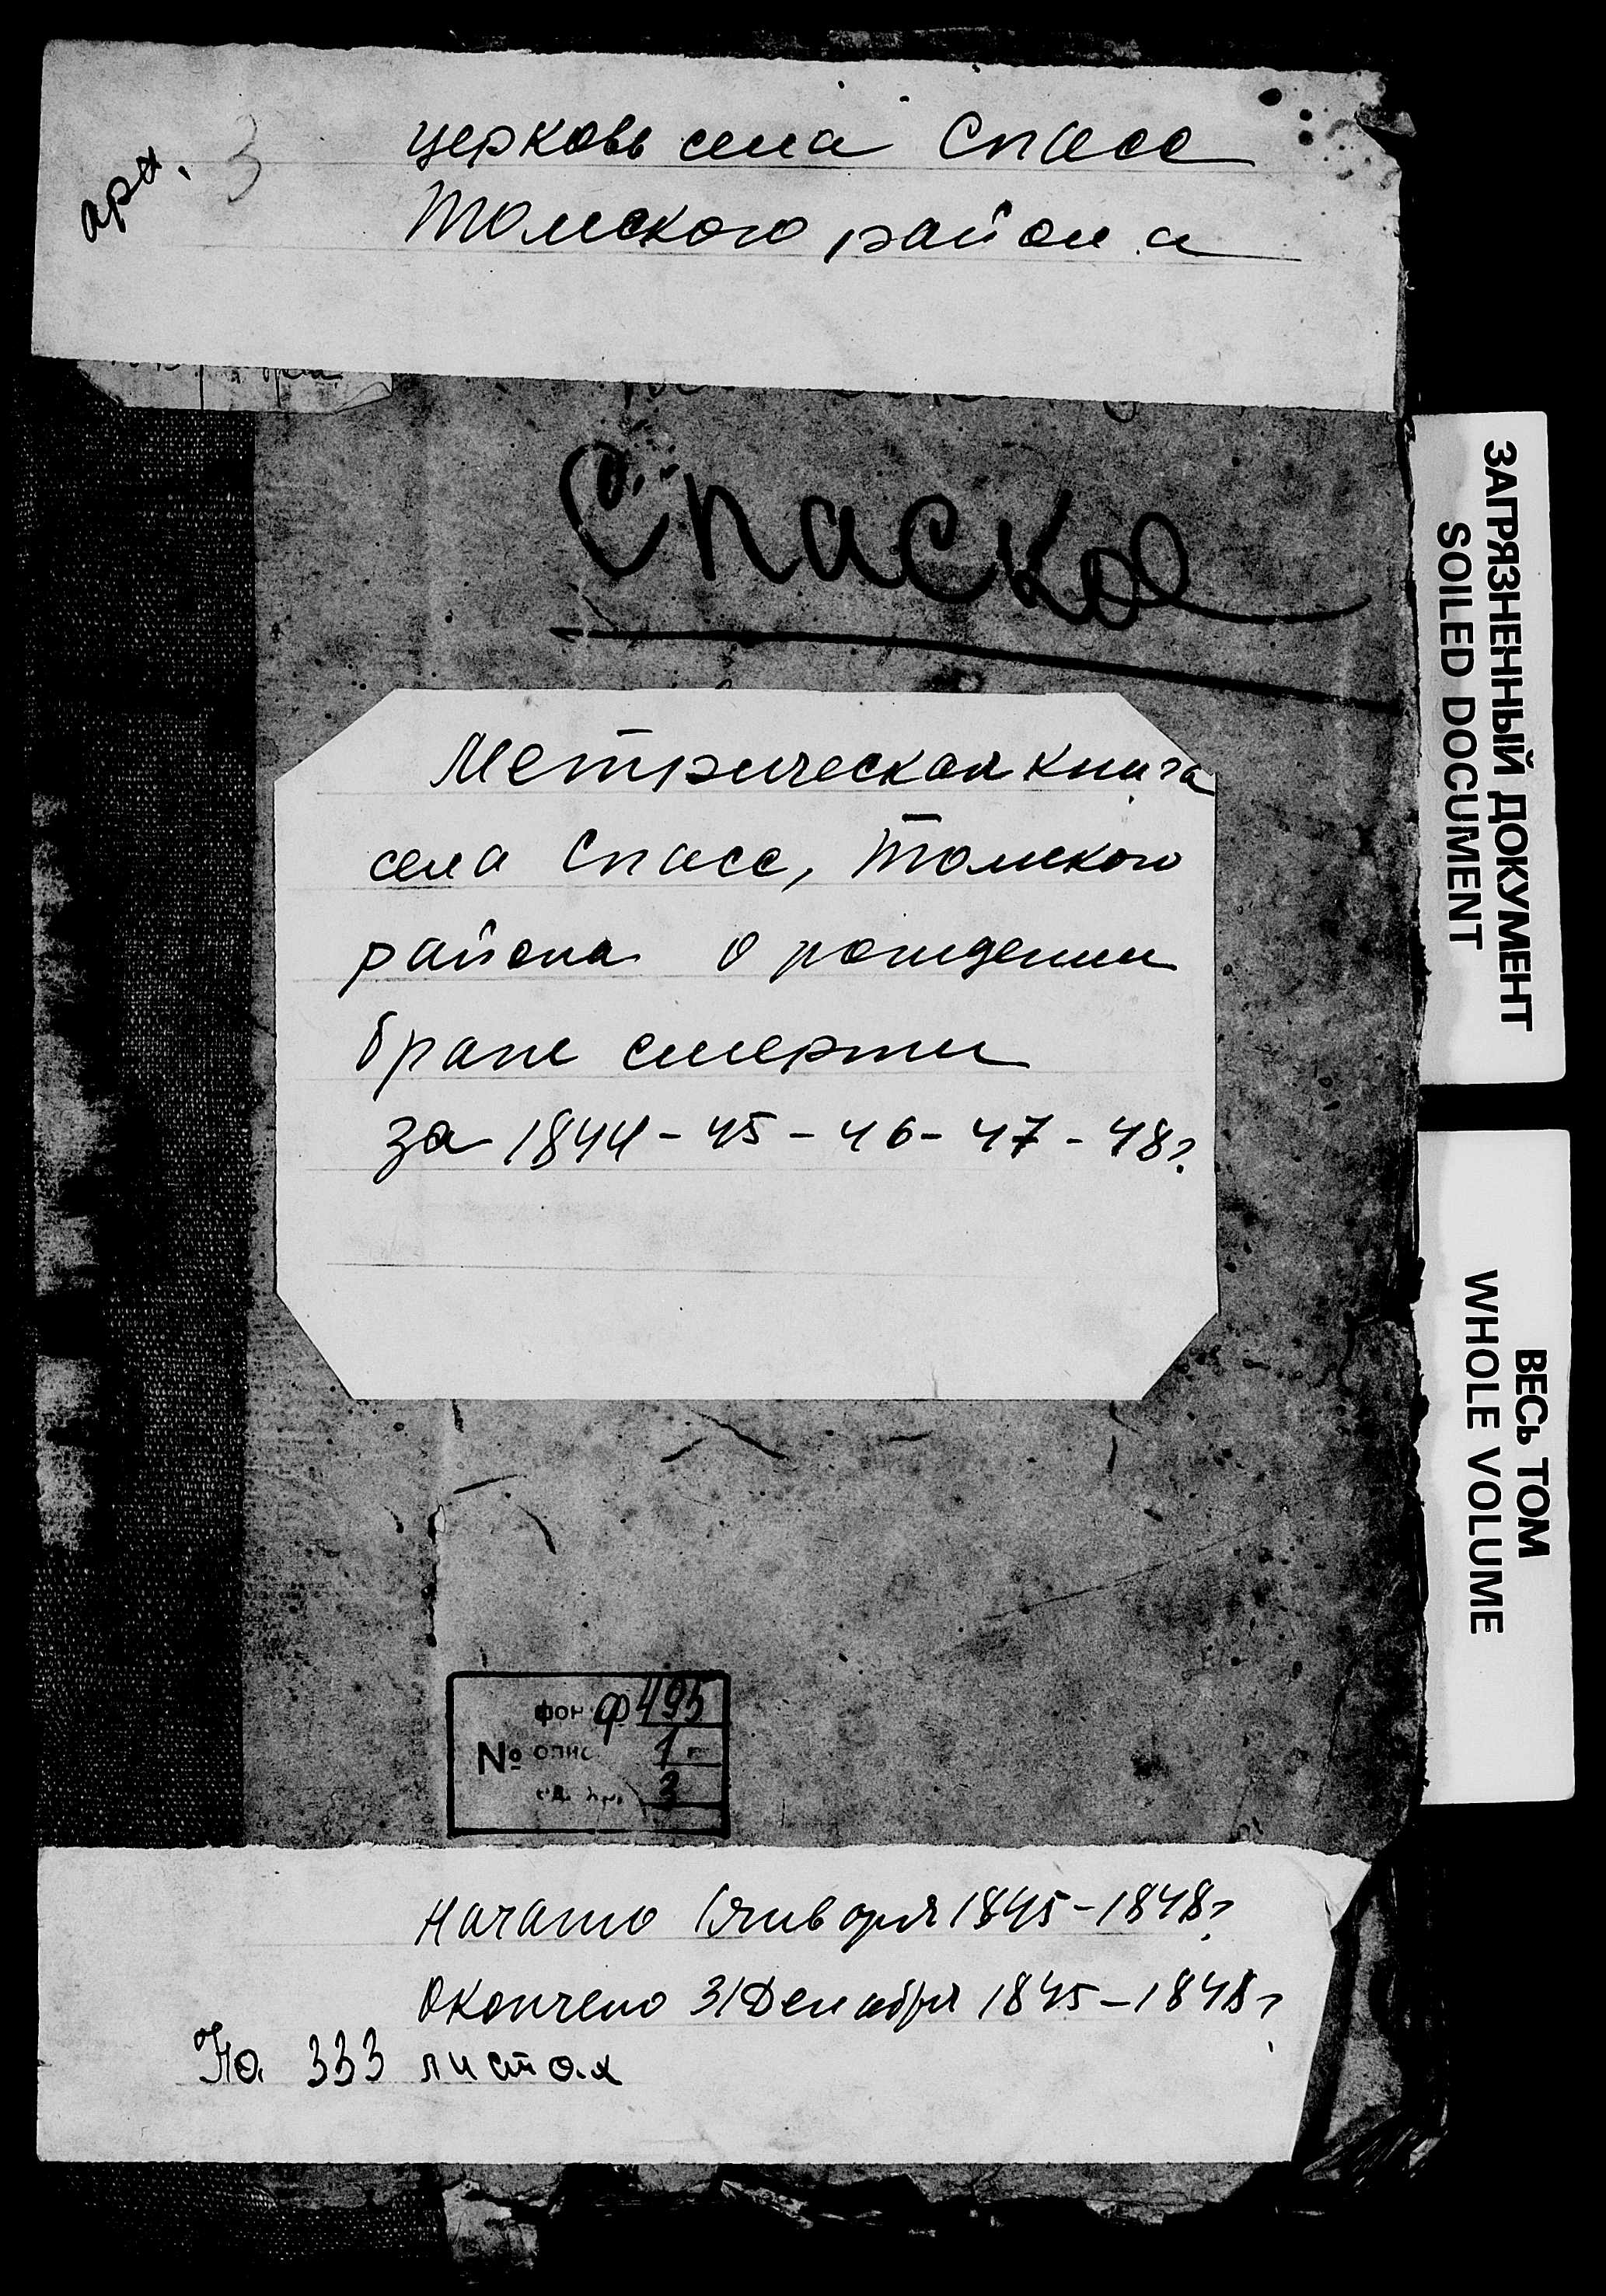 арх. 3
церковь села Спасс
Томского района
Спаское
Метрическая книга
села Спасс, Томского
района о рождении
браке смерти
за 1844-45-46-47-48г.
фон ф 495
№ опис 1
ед. хр. 3
Начато 1 января 1845-1848г.
Окончено 31 Декабря 1845-1848г.
На 333 листах
ЗАГРЯЗНЕННЫЙ ДОКУМЕНТ
SOILED DOCUMENT
ВЕСЬ ТОМ
WHOLE VOLUME